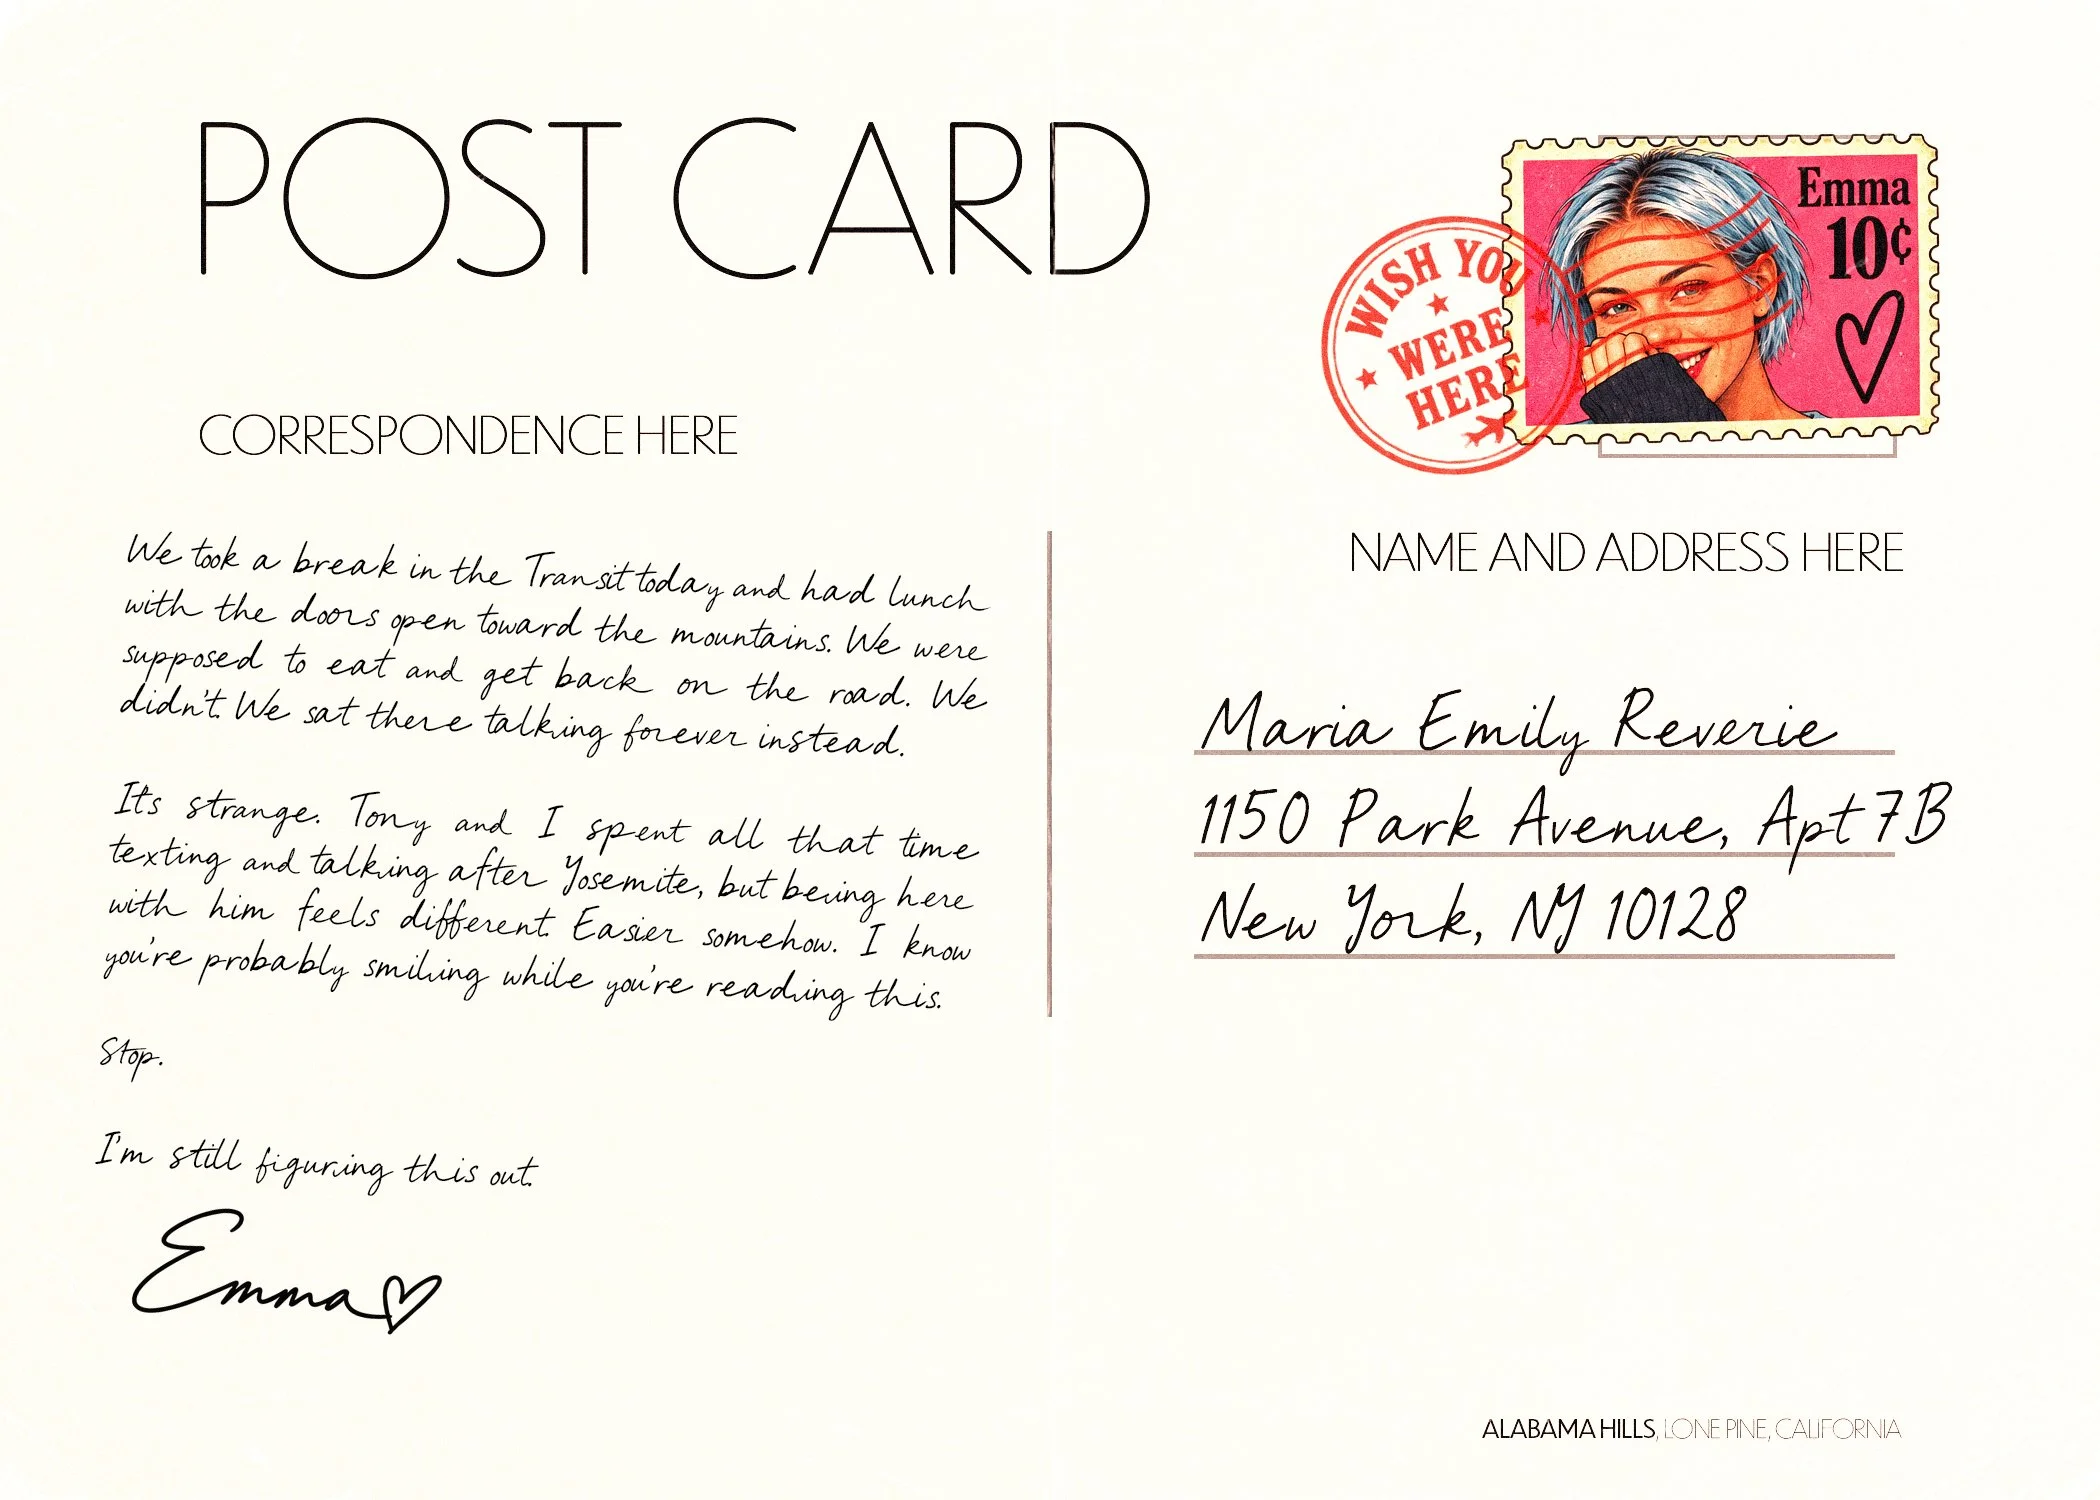 POST CARD
CORRESPONDENCE HERE
We took a break in the Transit today and had lunch
with the doors open toward the mountains. We were
supposed to eat and get back on the road. We
didn't. We sat there talking forever instead.
It's strange. Tony and I spent all that time
texting and talking after Yosemite, but being here
with him feels different. Easier somehow. I know
you're probably smiling while you're reading this.
Stop.
I'm still figuring this out.
Emma
WISH YOU
WERE
HERE
Emma
10¢
NAME AND ADDRESS HERE
Maria Emily Reverie
1150 Park Avenue, Apt 7B
New York, NY 10128
ALABAMA HILLS, LONE PINE, CALIFORNIA